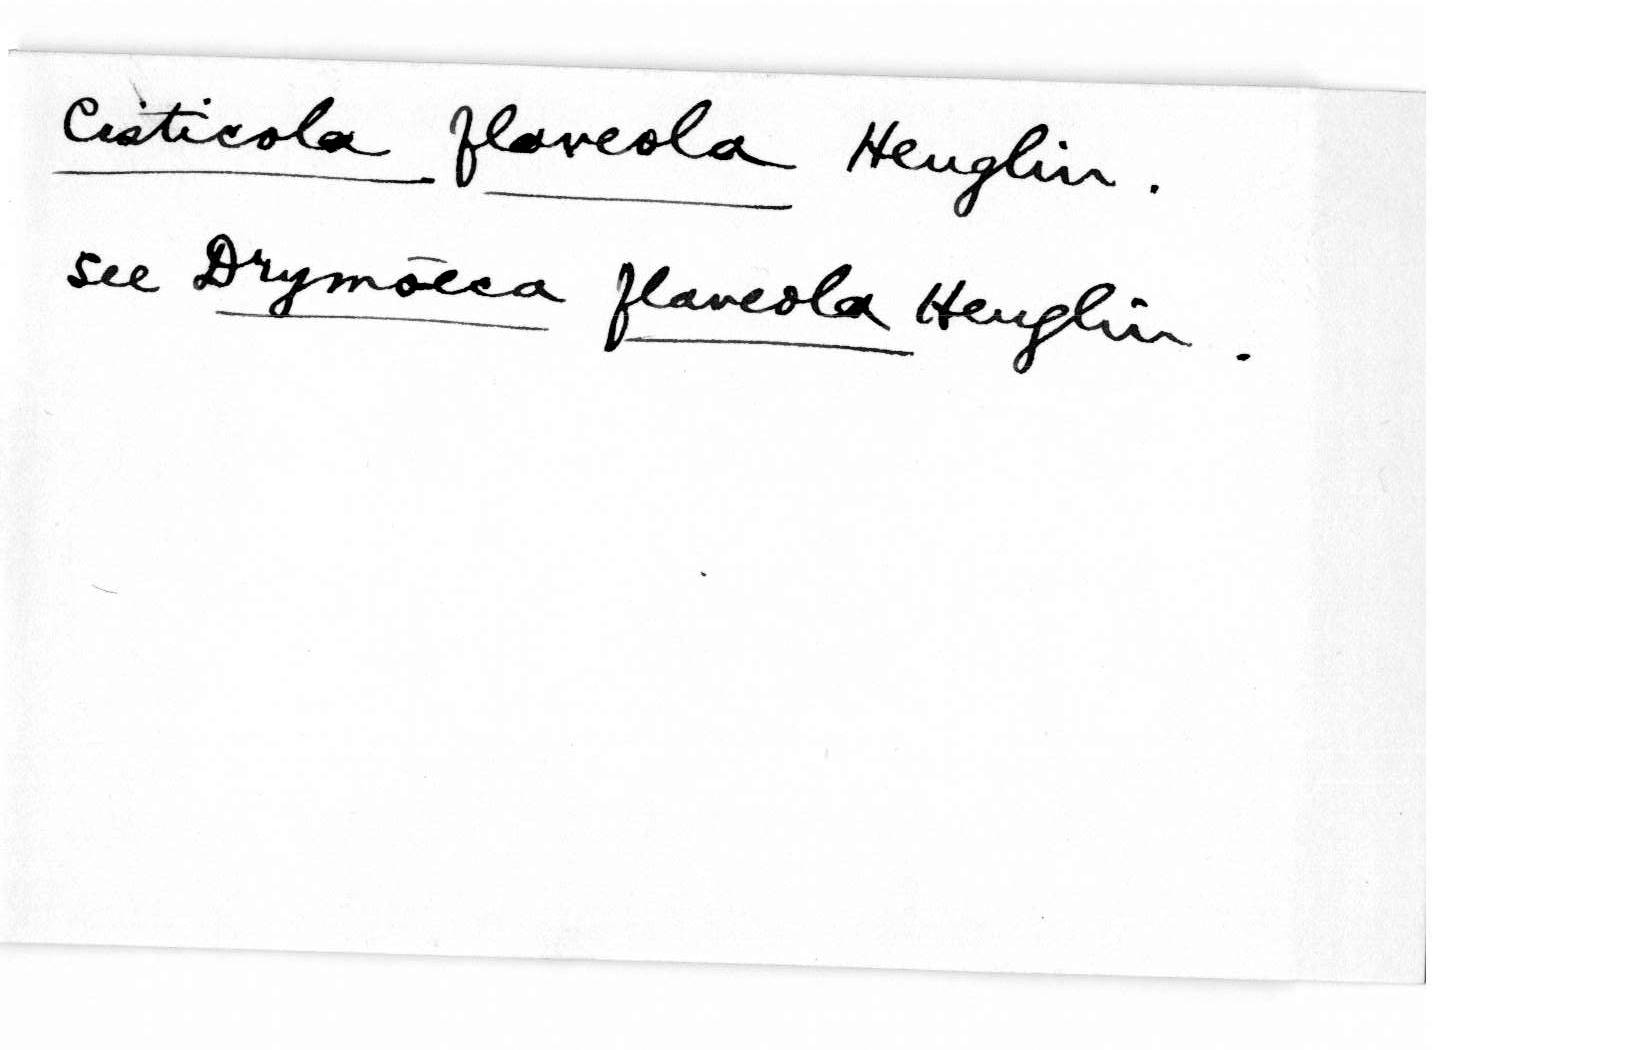 Cisticola flaveola Heuglin.
see Drymōeca flaveola Heuglin.